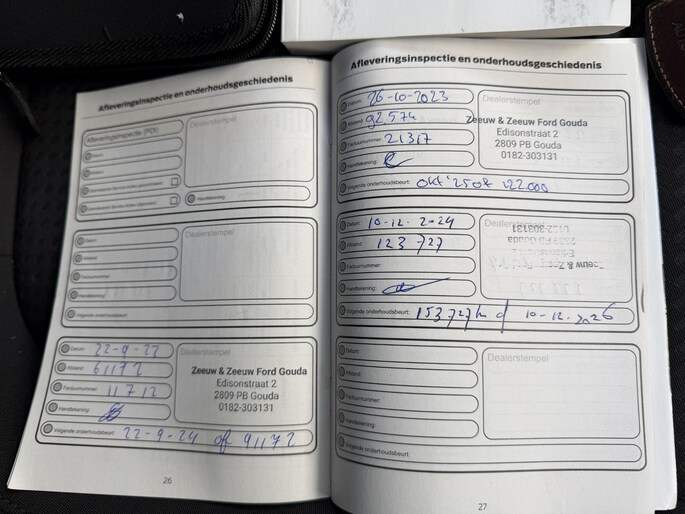 Afleveringsinspectie en onderhoudsgeschiedenis
Afleveringsinspectie (PDI)
Dealerstempel
Datum:
Handtekening:
Datum:
Dealerstempel
Afstand:
Factuurnummer:
Handtekening:
Volgende onderhoudsbeurt:
Datum: 22-9-22
Dealerstempel
Afstand: 61172
Zeeuw & Zeeuw Ford Gouda
Edisonstraat 2
2809 PB Gouda
0182-303131
Factuurnummer: 11712
Handtekening:
Volgende onderhoudsbeurt: 22-9-24 of 91172
26
Afleveringsinspectie en onderhoudsgeschiedenis
Datum: 26-10-2023
Dealerstempel
Afstand: 92574
Zeeuw & Zeeuw Ford Gouda
Edisonstraat 2
2809 PB Gouda
0182-303131
Factuurnummer: 21317
Handtekening:
Volgende onderhoudsbeurt: okt '25 of 122.000
Datum: 10-12-2024
Afstand: 123727
0182-303131
2809 PB Gouda
Factuurnummer:
Handtekening:
Volgende onderhoudsbeurt: 153727 10-12-2026
Datum:
Dealerstempel
Afstand:
Factuurnummer:
Handtekening:
Volgende onderhoudsbeurt:
27